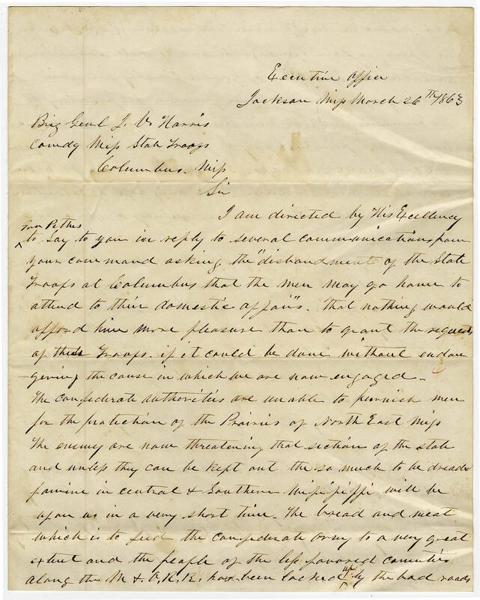 Executive Office
Jackson Miss March 26th 1863
Brig Genl J. V. Harris
Comdg Miss State Troops
Columbus. Miss
Sir
I am directed by His Excellency
Gov Pettus
to say to you in reply to several communications from
your command asking the "disbandment of the State
Troops at Columbus that the men may go home to
attend to their domestic affairs". That nothing would
afford him more pleasure than to grant the request
of these Troops. if it could be done without endan
gering the cause in which we are now engaged.
The confederate authorities are unable to furnish men
for the protection of the Prairies of North East Miss
The enemy are now threatening that section of the state
and unless they can be kept out the so much to be dreaded
famine in central & Southern Mississippi will be
upon us in a very short time. The bread and meat
which is to feed the confederate army to a very great
extent and the people of the less favored counties
along the M & O. R. R. has been locked up by the bad roads